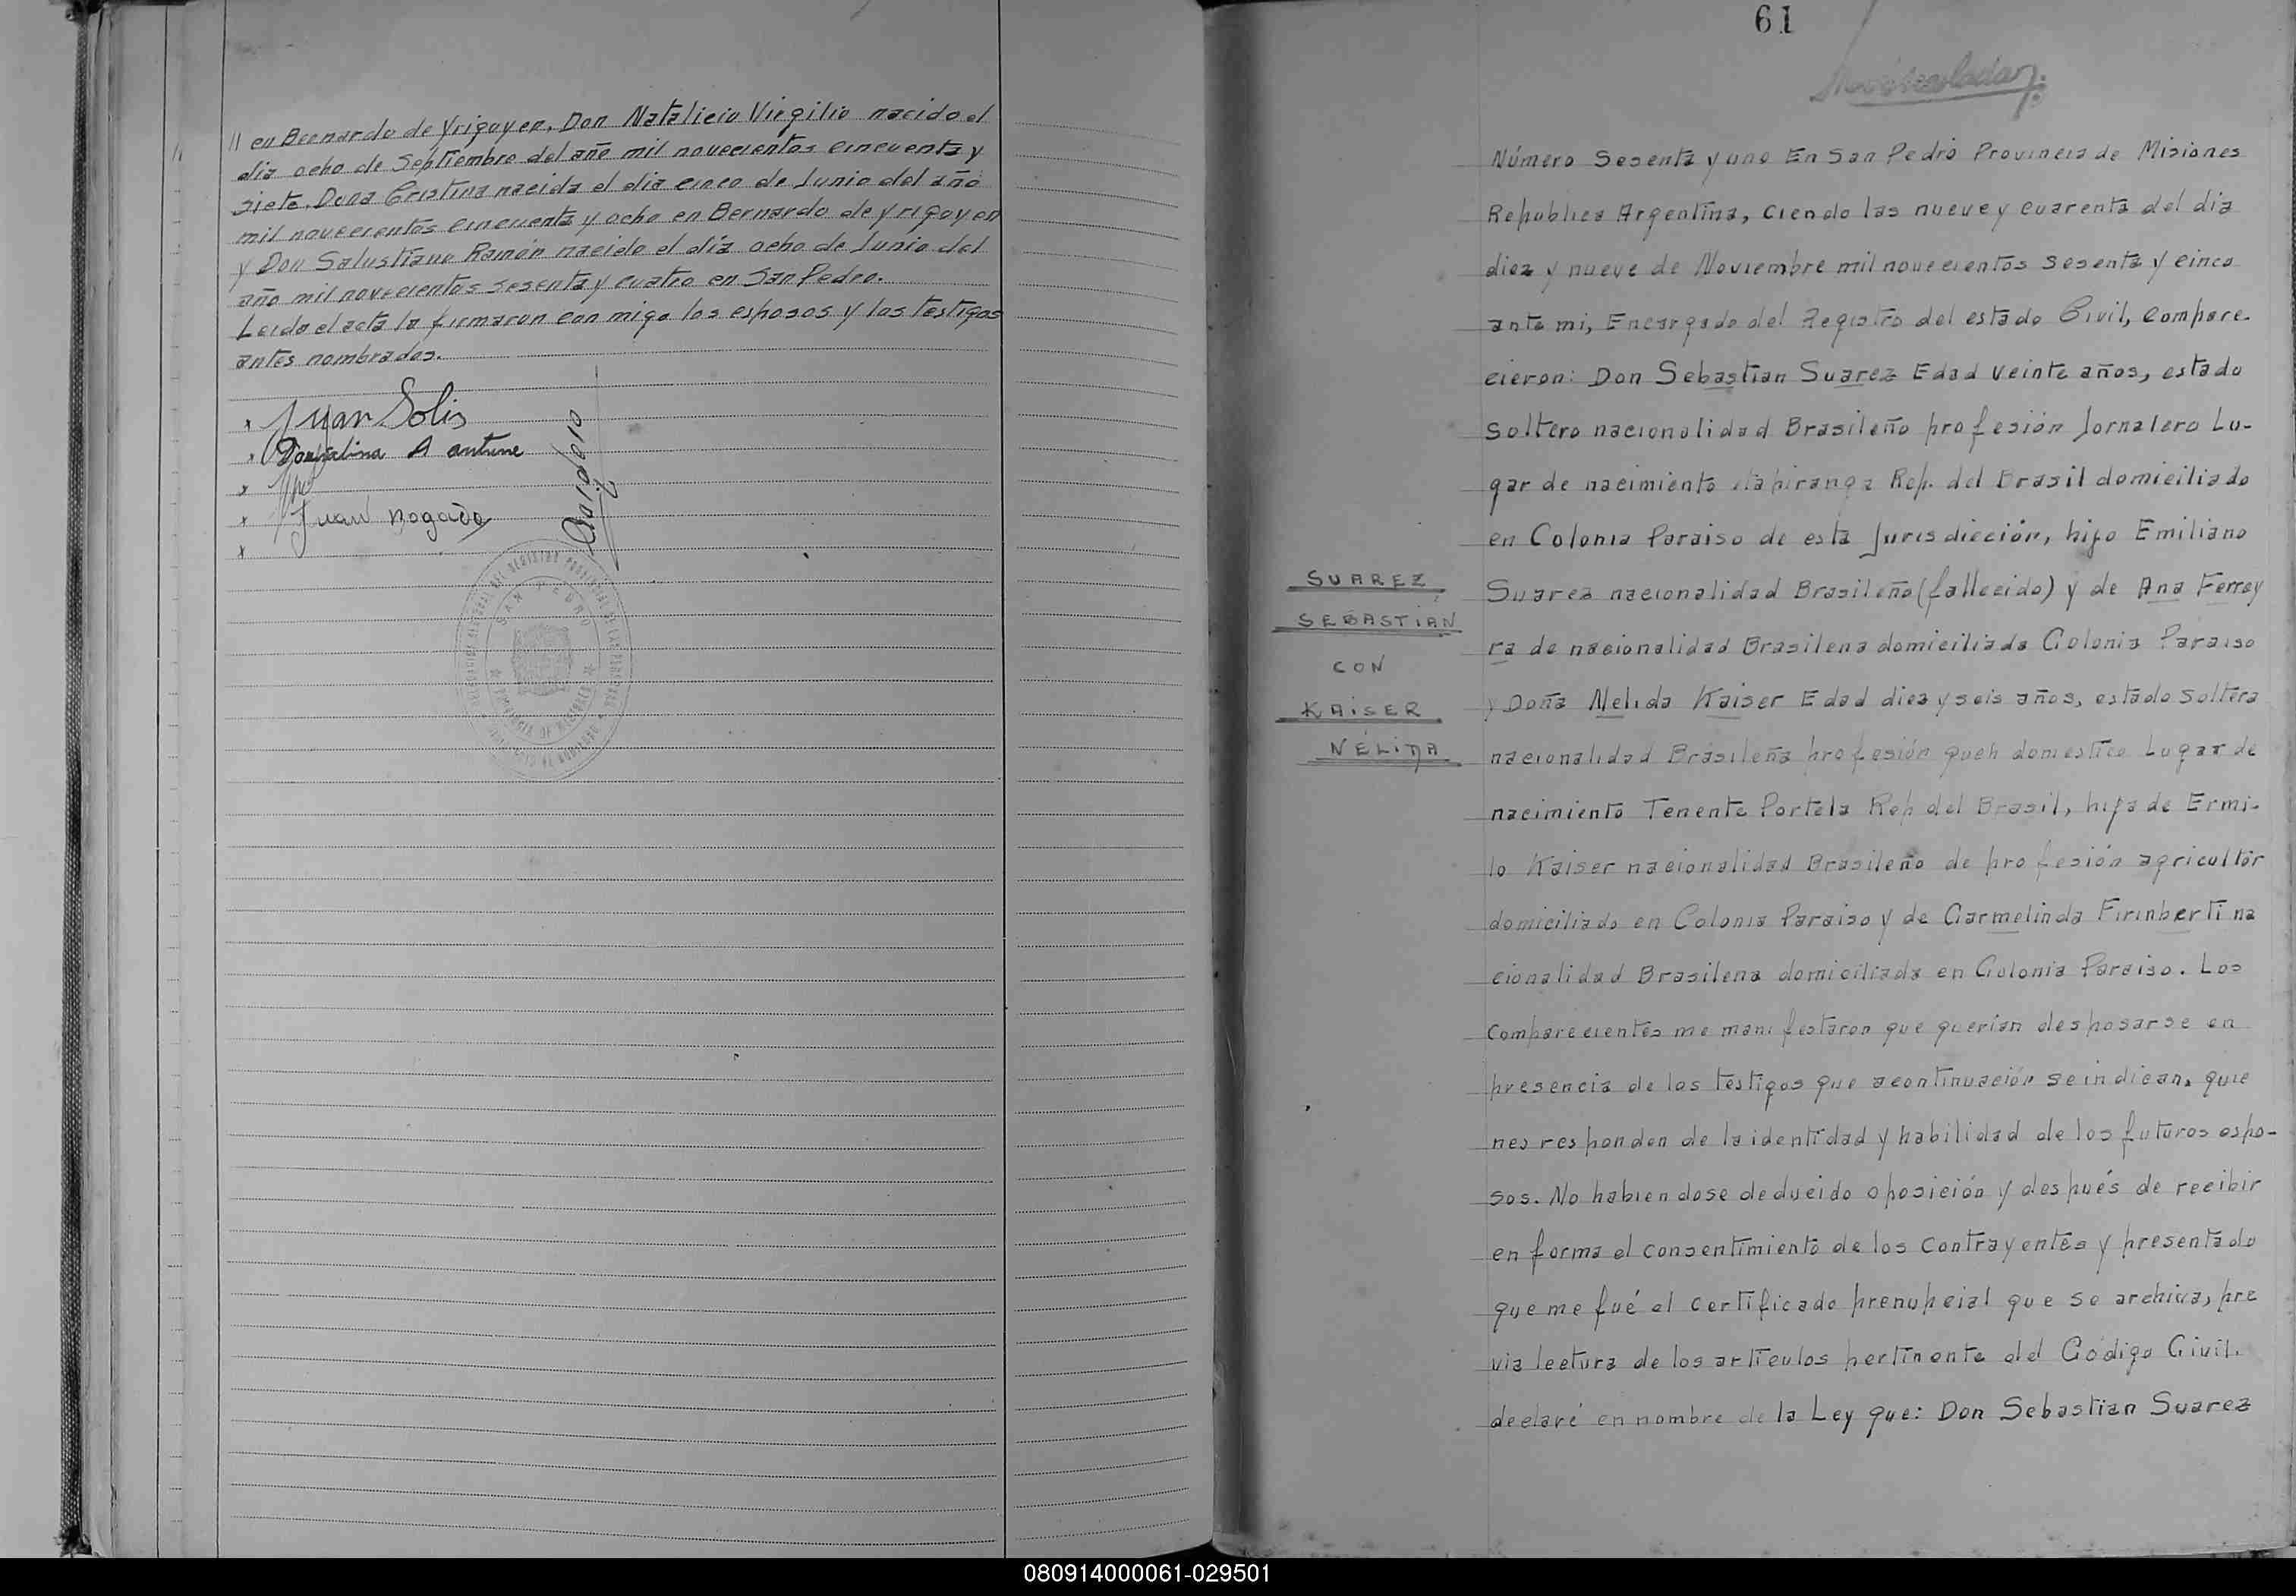 // en Bernardo de Yrigoyen, Don Natalicio Virgilio nacido el
dia ocho de Septiembre del año mil novecientos cincuenta y
siete. Doña Cristina nacida el dia cinco de Junio del año
mil novecientos cincuenta y ocho en Bernardo de Yrigoyen
y Don Salustiano Ramón nacido el día ocho de Junio del
año mil novecientos sesenta y cuatro en San Pedro.
Leida el acta la firmaron con migo los esposos y los testigos
antes nombrados.
x Juan Solis
A antune
x
x Juan Nogado
x
SAN PEDRO
61
Número Sesenta y uno En San Pedro Provincia de Misiones
Republica Argentina, ciendo las nueve y cuarenta del dia
diez y nueve de Noviembre mil novecientos sesenta y cinco
ante mi, Encargado del Registro del estado Civil, compare-
cieron: Don Sebastian Suarez Edad veinte años, estado
soltero nacionalidad Brasileño profesión Jornalero Lu-
gar de nacimiento itapiranga Rep. del Brasil domiciliado
en Colonia Paraiso de esta Jurisdicción, hijo Emiliano
Suarez nacionalidad Brasileño (fallecido) y de Ana Ferrey
ra de nacionalidad Brasilena domiciliada Colonia Paraiso
y Doña Nelida Kaiser Edad diez y seis años, estado soltera
nacionalidad Brasileña profesión queh domestico Lugar de
nacimiento Tenente Portela Rep del Brasil, hija de Ermi-
lo Kaiser nacionalidad Brasileño de profesión agricultor
domiciliado en Colonia Paraiso y de Carmelinda Firinberti na
cionalidad Brasilena domiciliada en Colonia Paraiso. Los
comparecientes me manifestaron que querian desposarse en
presencia de los testigos que acontinuación se indican, quie
nes responden de la identidad y habilidad de los futuros espo-
sos. No habiendose deducido oposición y después de recibir
en forma el consentimiento de los contrayentes y presentado
que me fué el certificado prenupcial que se archiva, pre
via lectura de los artículos pertinente del Código Civil.
declaré en nombre de la Ley que: Don Sebastian Suarez
SUAREZ
SEBASTIAN
CON
KAISER
NÉLIDA
080914000061-029501